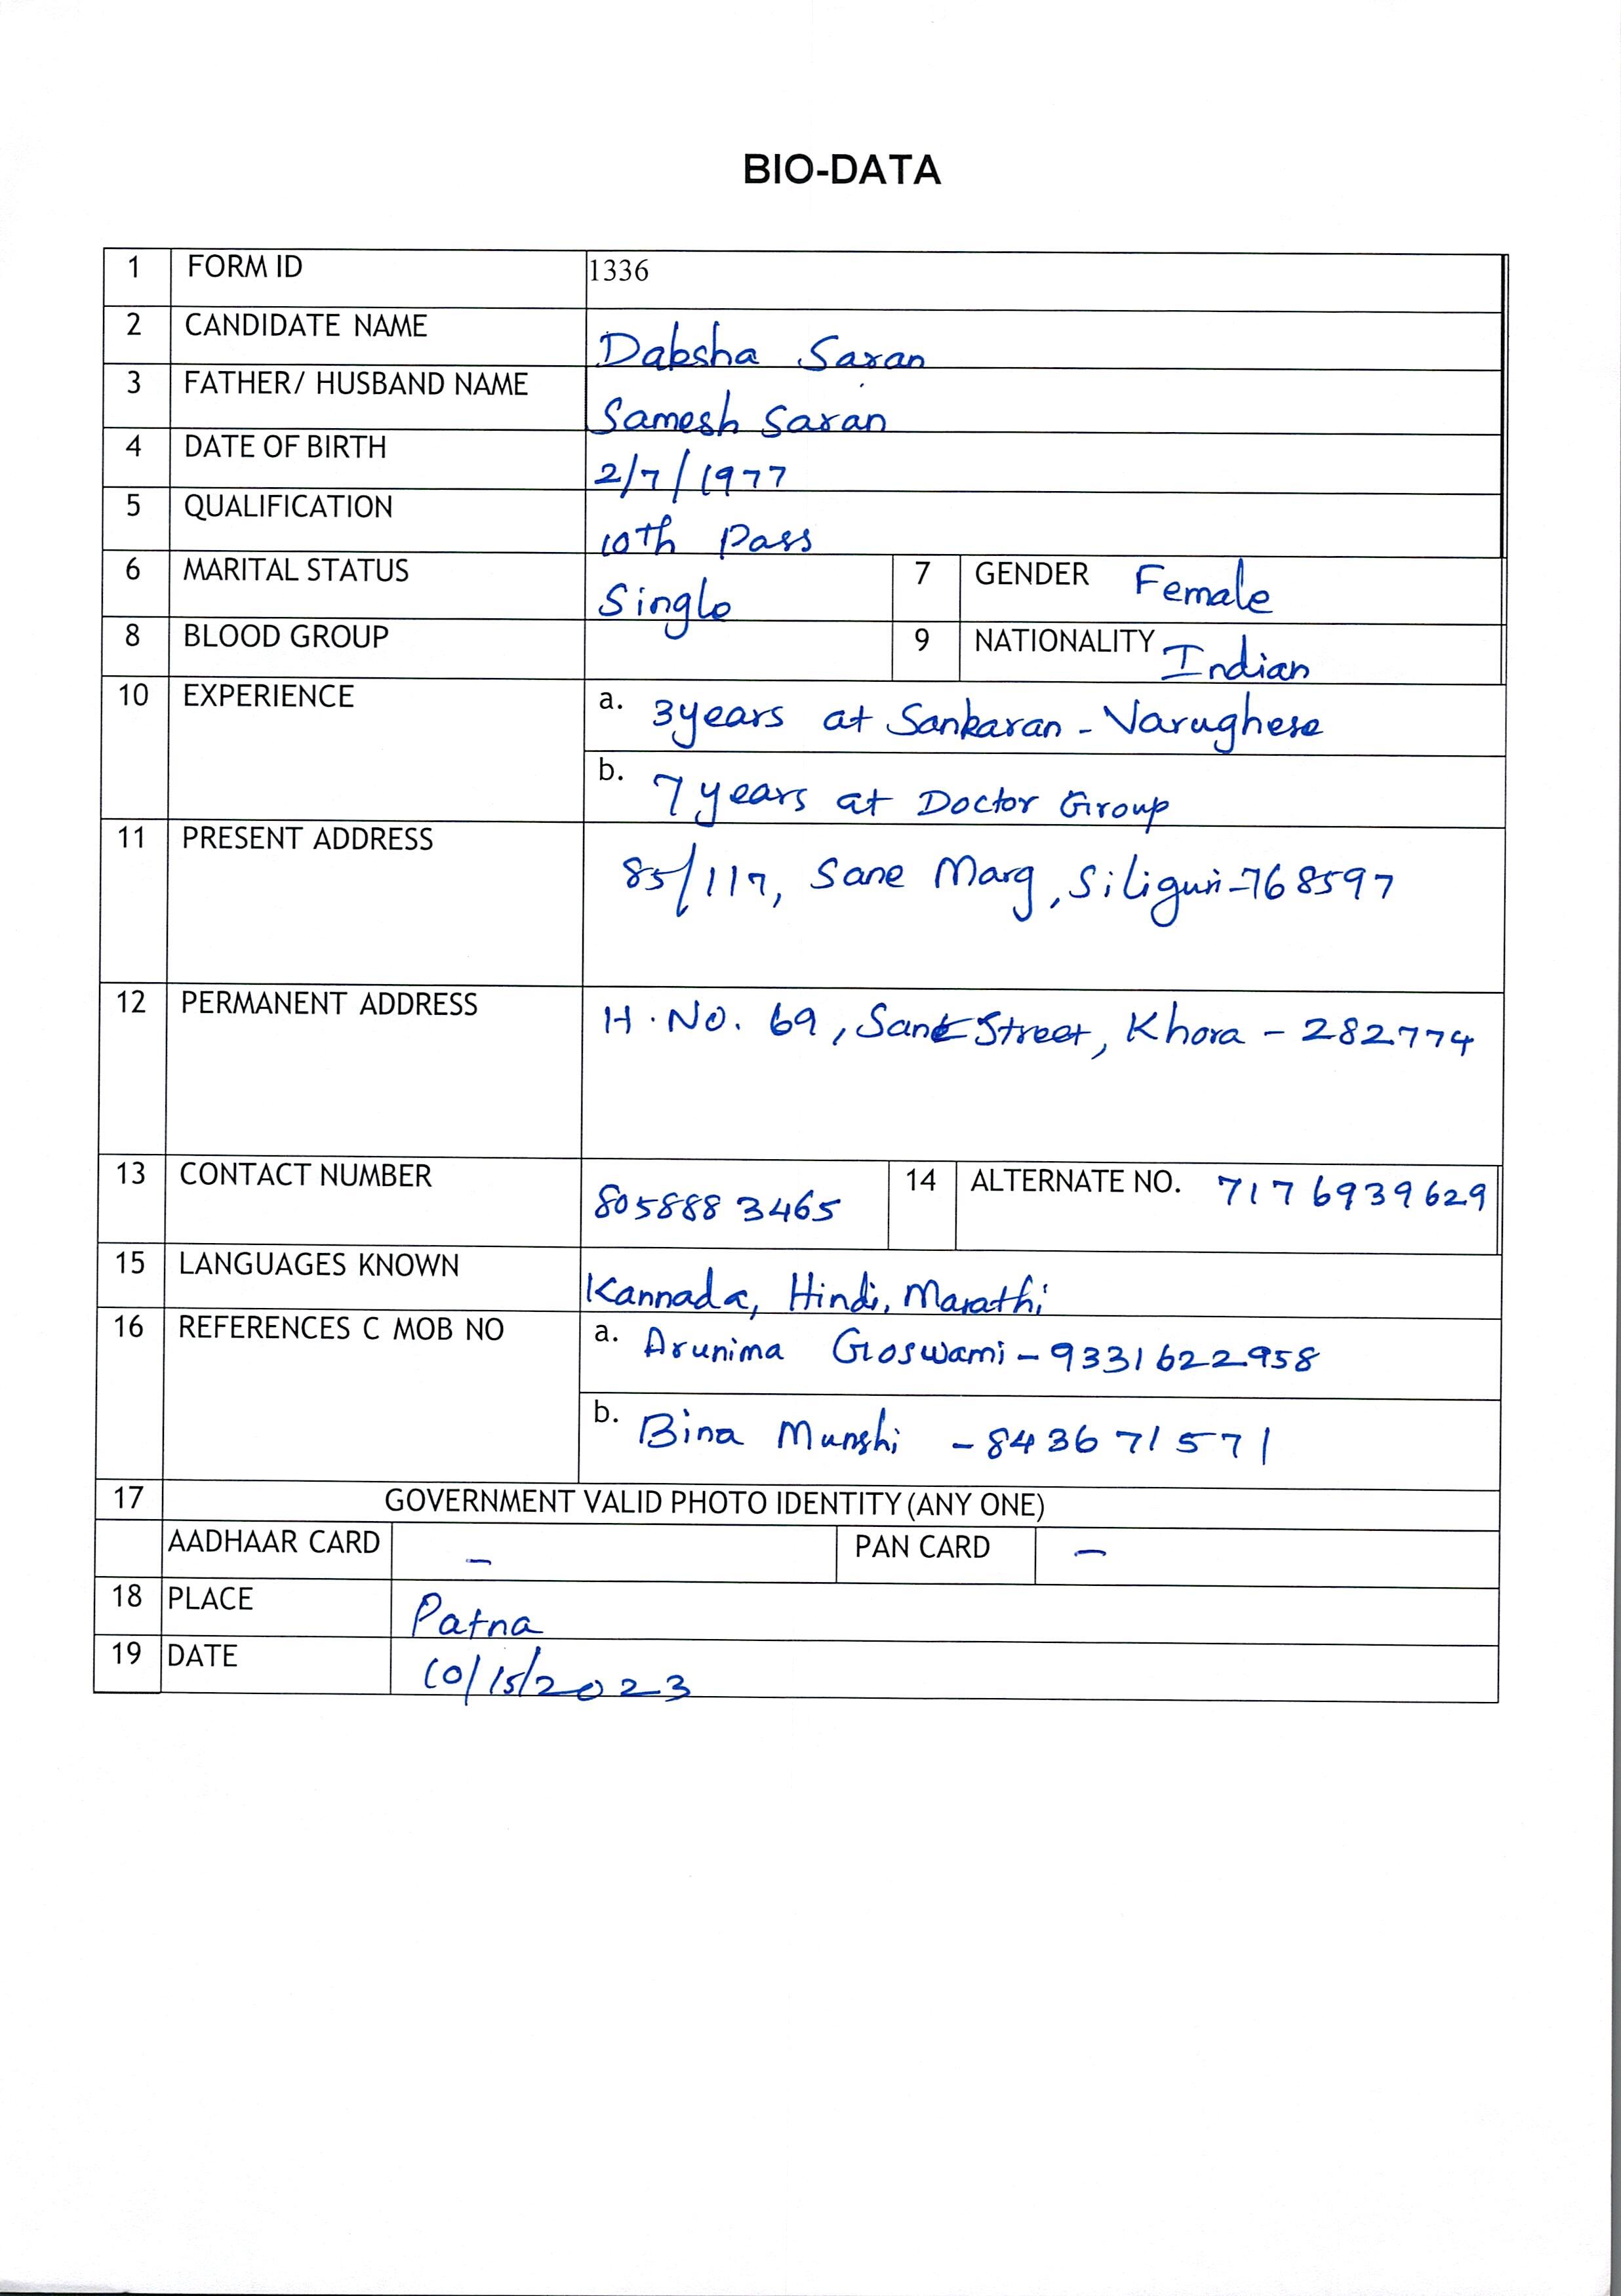 BIO-DATA
1 FORM ID 1336
2 CANDIDATE NAME Daksha Saran
3 FATHER/ HUSBAND NAME Samesh Saran
4 DATE OF BIRTH 2/7/1977
5 QUALIFICATION 10th Pass
6 MARITAL STATUS Single 7 GENDER Female
8 BLOOD GROUP 9 NATIONALITY Indian
10 EXPERIENCE a. 3years at Sankaran - Varughese
b. 7 years at Doctor Group
11 PRESENT ADDRESS 85/117, Sane Marg, Siliguri-768597
12 PERMANENT ADDRESS H. No. 69, Street, Khora - 282774
13 CONTACT NUMBER 8058883465 14 ALTERNATE NO. 7176939629
15 LANGUAGES KNOWN Kannada, Hindi, Marathi
16 REFERENCES C MOB NO a. Arunima Goswami - 9331622958
b. Bina Munshi - 843671571
17 GOVERNMENT VALID PHOTO IDENTITY (ANY ONE)
AADHAAR CARD - PAN CARD -
18 PLACE Patna
19 DATE 10/15/2023